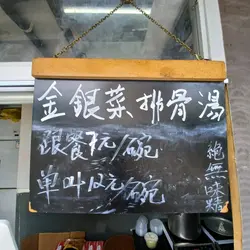 金銀菜排骨湯
跟餐 元/碗
单叫12元/碗
絕無味精